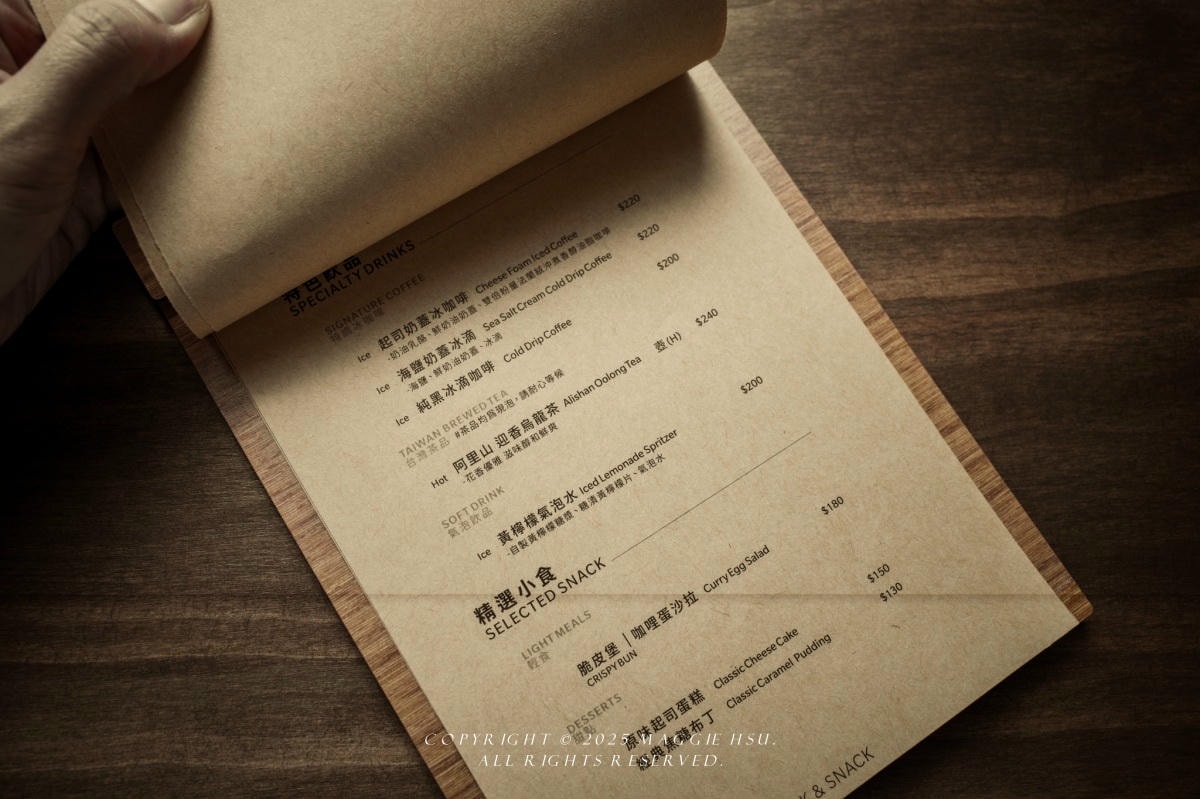 特色飲品
SPECIALTY DRINKS
SIGNATURE COFFEE
Ice 起司奶蓋冰咖啡 Cheese Foam Iced Coffee $220
-奶油乳酪、鮮奶油奶蓋、雙倍粉量法蘭絨沖煮香醇油脂咖啡
Ice 海鹽奶蓋冰滴 Sea Salt Cream Cold Drip Coffee $220
-海鹽、鮮奶油奶蓋、冰滴
Ice 純黑冰滴咖啡 Cold Drip Coffee $200
TAIWAN BREWED TEA
台灣茶品 #茶品均為現泡，請耐心等候
Hot 阿里山 迎香烏龍茶 Alishan Oolong Tea 壺(H) $240
-花香優雅 滋味醇和鮮爽
SOFT DRINK
氣泡飲品
Ice 黃檸檬氣泡水 Iced Lemonade Spritzer $200
-自製黃檸檬糖漿、糖漬黃檸檬片、氣泡水
精選小食
SELECTED SNACK
LIGHT MEALS
輕食
脆皮堡｜咖哩蛋沙拉 Curry Egg Salad $180
CRISPY BUN
DESSERTS
甜點
原味起司蛋糕 Classic Cheese Cake $150
經典焦糖布丁 Classic Caramel Pudding $130
& SNACK
COPYRIGHT © 2025 MAGGIE HSU.
ALL RIGHTS RESERVED.